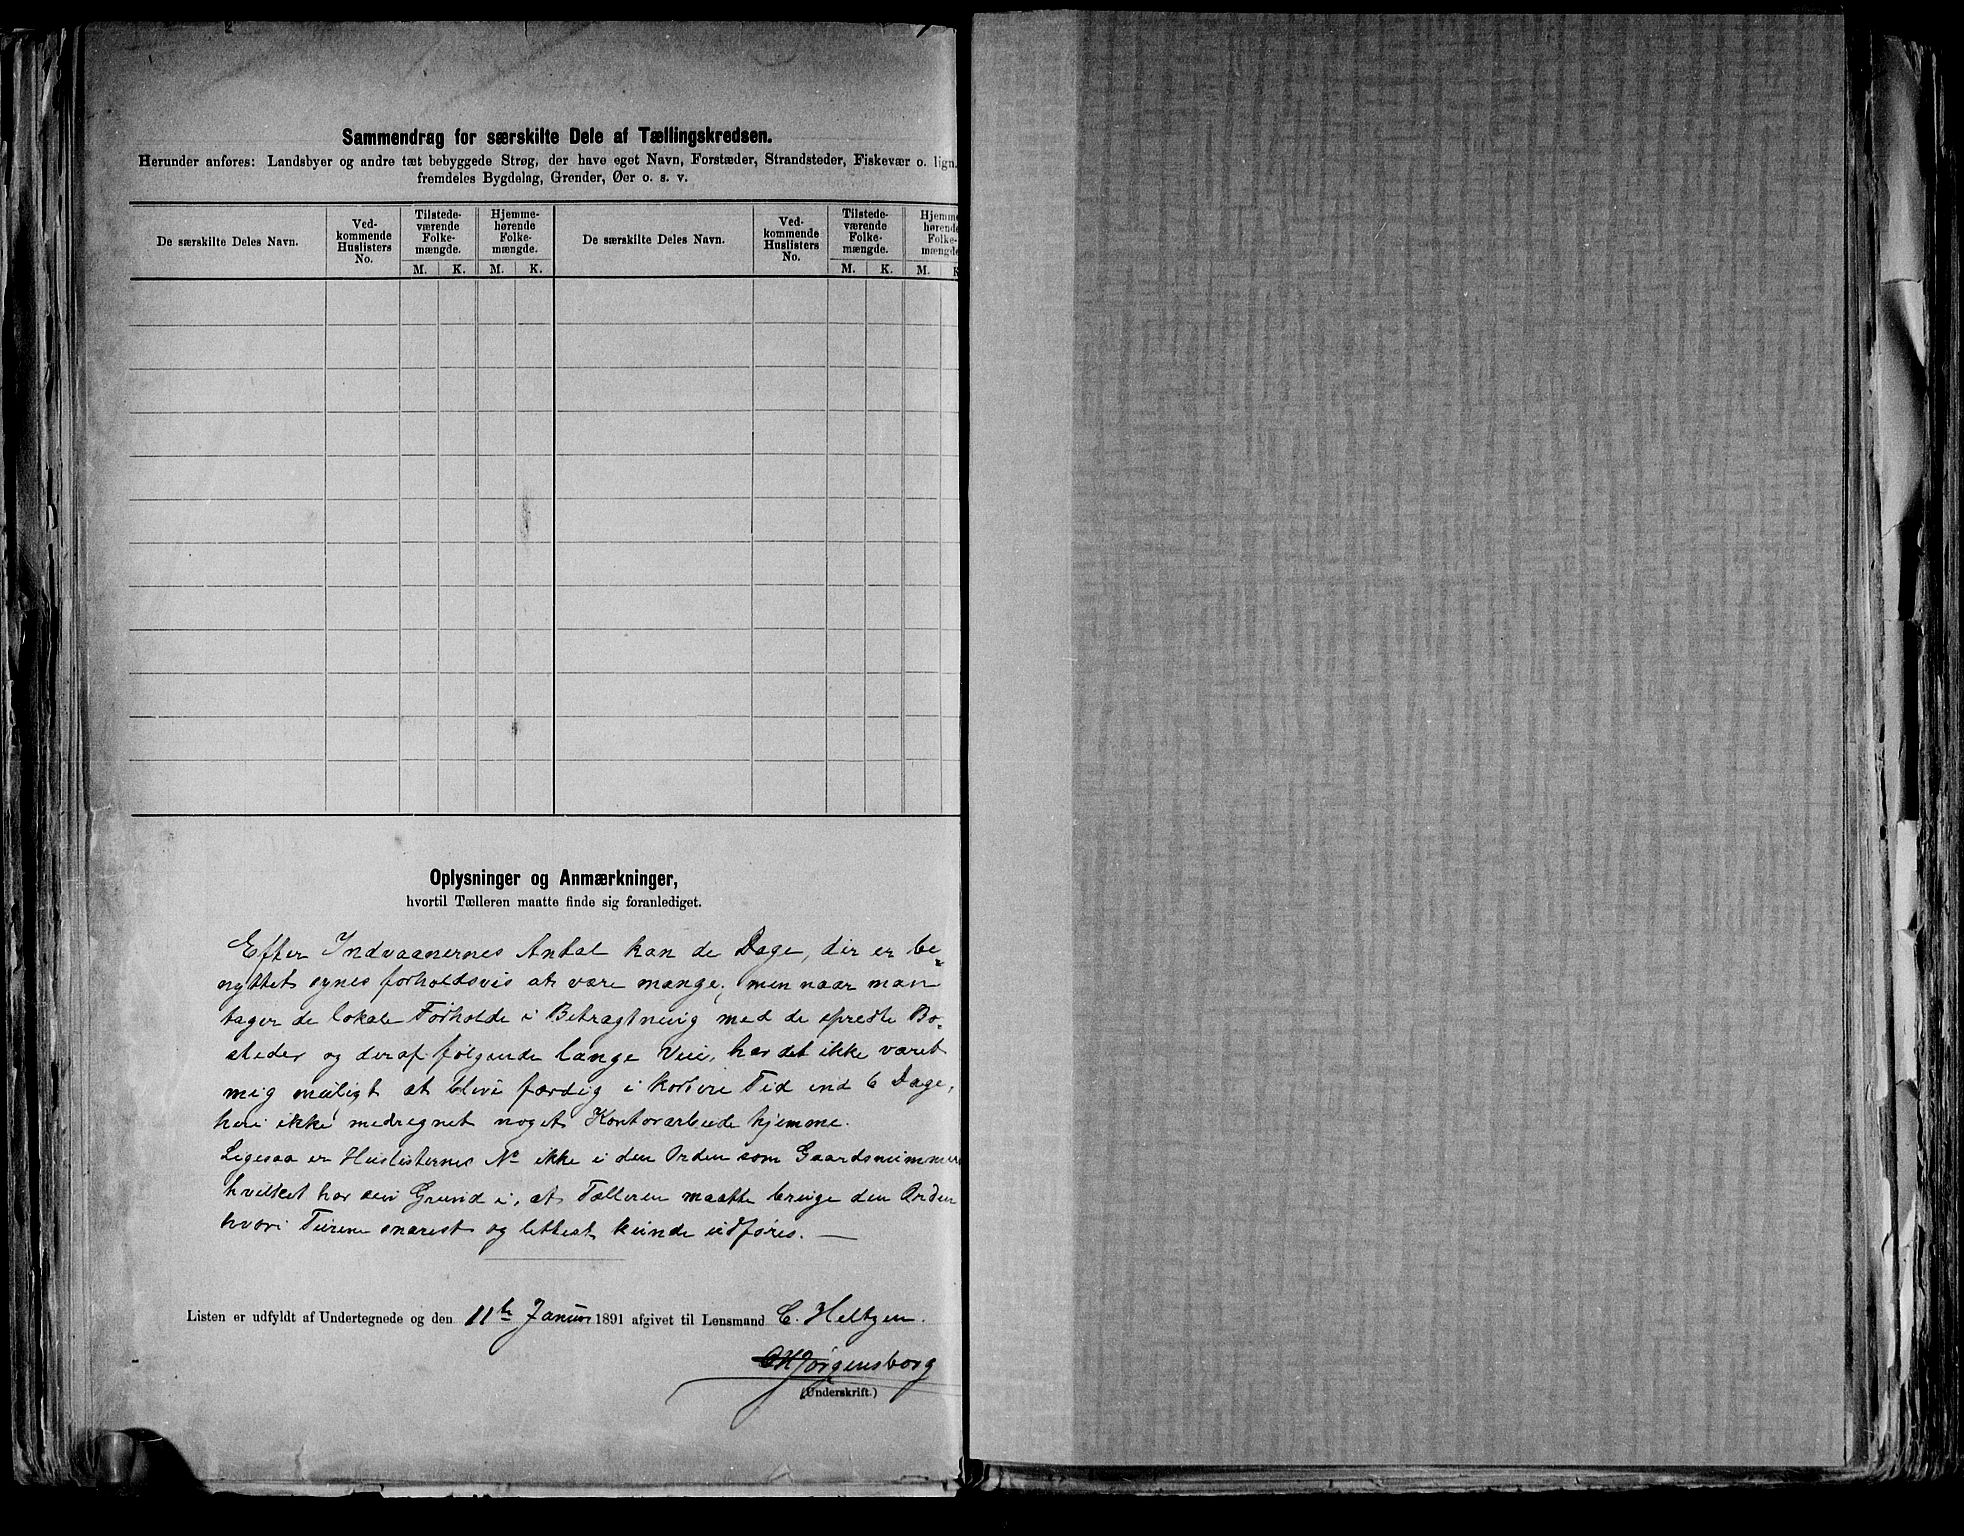 Sammendrag for særskilte Dele af Tællingskredsen.
Herunder anføres: Landsbyer og andre tæt bebyggede Strøg, der have eget Navn, Forstæder, Strandsteder, Fiskevær o. lign.
fremdeles Bygdelag, Grender, Øer o. s. v.
De særskilte Deles Navn. Ved-kommende Huslisters No. Tilstede-værende Folke-mængde. Hjemme-hørende Folke-mængde. De særskilte Deles Navn. Ved-kommende Huslisters No. Tilstede-værende Folke-mængde. Hjemme-hørende Folke-mængde
M. K. M. K. M. K. M. K
Oplysninger og Anmærkninger,
hvortil Tælleren maatte finde sig foranlediget.
Efter Indvaanernes Antal kan de Dage, der er be-
nyttet synes forholdsvis at være mange, men naar man
tager de lokale Forholde i Betragtning med de spredte Bo-
steder og deraf følgende lange Veie, har det ikke været
mig muligt at blive færdig i kortere Tid end 6 Dage,
heri ikke medregnet noget Kontorarbeide hjemme.
Ligesaa er Huslisternes No ikke i den Orden som Gaardsnummer
hvilket har sin Grund i, at Tælleren maatte bruge den Orden
hvori Turene snarest og lettest kunde udføres. —
Listen er udfyldt af Undertegnede og den 11te Januar 1891 afgivet til Lensmand C. Heltzen.
Jørgensborg
(Underskrift.)